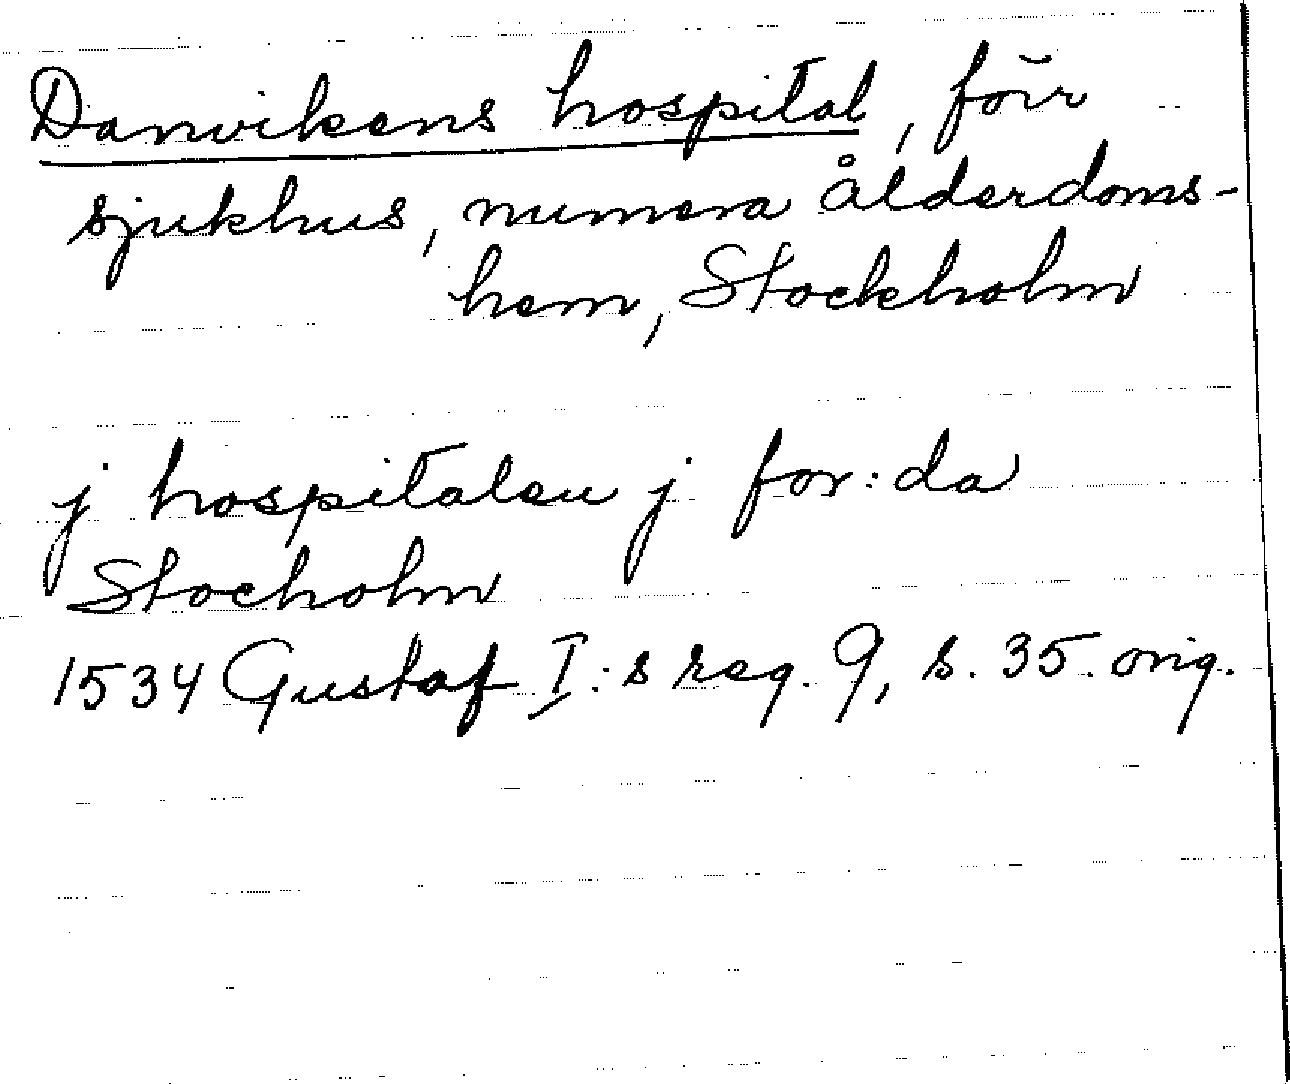 Danvikens hospital, förr
sjukhus, numera ålderdoms-
hem, Stockholm
j hospitalen j for:da
Stocholm
1534 Gustaf I:s reg. 9, s. 35. orig.